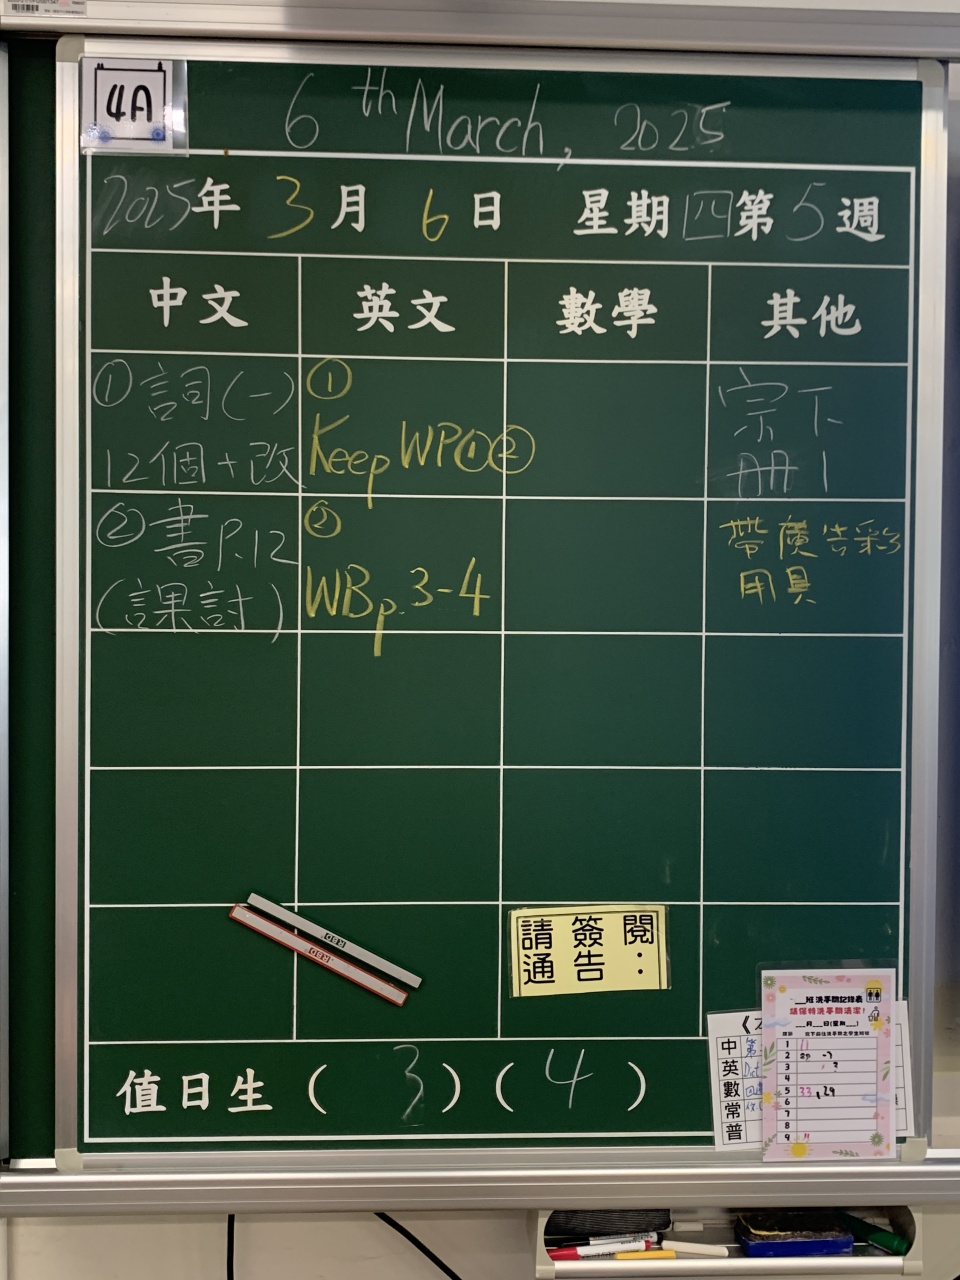 4A
6th March, 2025
2025年 3月 6日 星期四 第5週
中文 英文 數學 其他
① 詞(一)
12個+改
①
Keep WP①②
宗下
冊1
② 書P.12
(課討)
②
WBp.3-4
帶廣告彩
用具
RBD
RBD
請簽閱
通告：
值日生 ( 3 ) ( 4 )
中
英
數
常
普
班洗手間記錄表
請保持洗手間清潔!
月 日(星期 )
1 11
2
3
4
5 33, 29
6
7
8
9